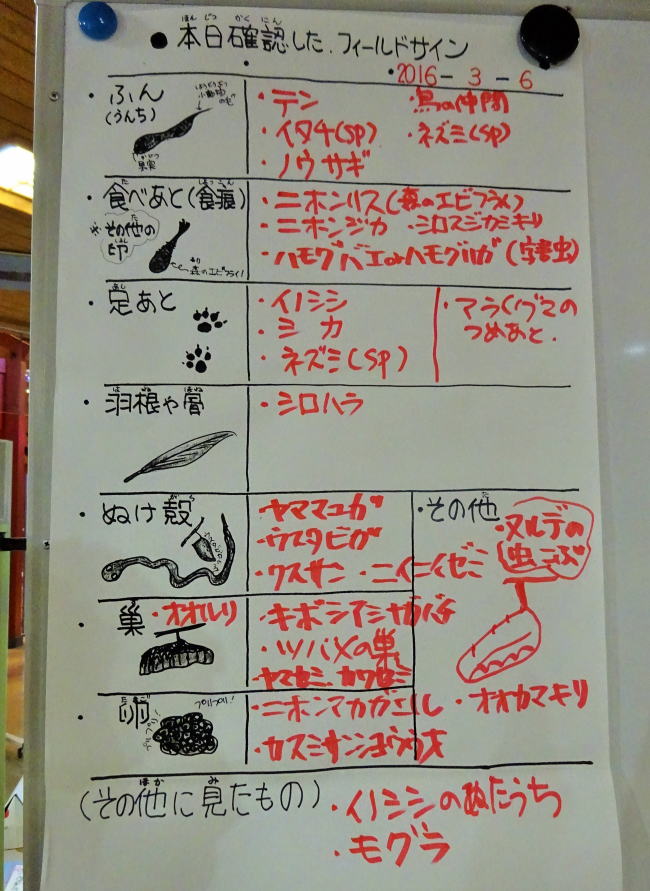 ほん じつ かく にん
● 本日確認した. フィールドサイン
・2016－3－6
・ふん
(うんち)
果実
・テン ・鳥の仲間
・イタチ(sp) ・ネズミ(sp)
・ノウサギ
・食べあと(食痕)
※その他の印
森のエビフライ!
・ニホンリス(森のエビフライ)
・ニホンジカ ・シロスジカミキリ
・ハモグバエorハモグリガ(字書虫)
あし
・足あと
・イノシシ
・シカ
・ネズミ(sp)
・マライグマの
つめあと.
は ね ほね
・羽根や骨
・シロハラ
から
・ぬけ殻
ヤママユガ
・ウスタビガ
・クスサン ・ニイニイゼミ
・その他
・ヌルデの
虫こぶ
・オオカマキリ
す
・巣 ・オオルリ
・キボシアシナガバチ
・ツバメの巣
ヤマセミ. カワセミ
たまご
・卵
プリプリ!
・ニホンアカガエル
・カスミサンショウウオ
ほか み
(その他に見たもの)
・イノシシのぬたうち
・モグラ